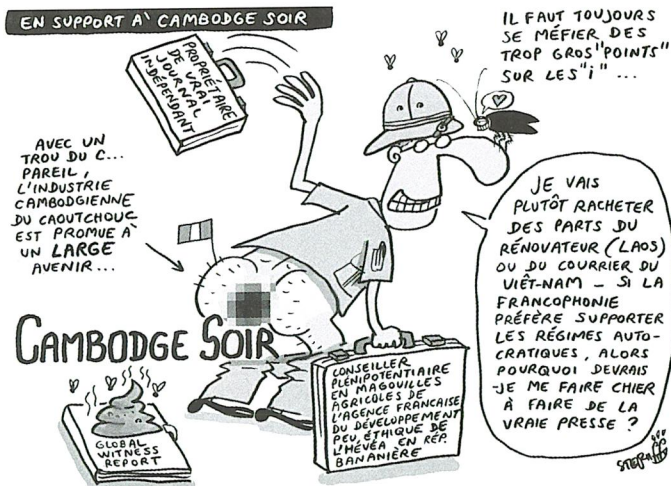 EN SUPPORT À CAMBODGE SOIR
IL FAUT TOUJOURS
SE MÉFIER DES
TROP GROS "POINTS"
SUR LES "I" ...
PROPRIÉTAIRE
DE VRAI
JOURNAL
INDÉPENDANT
AVEC UN
TROU DU C...
PAREIL,
L'INDUSTRIE
CAMBODGIENNE
DU CAOUTCHOUC
EST PROMUE À
UN LARGE
AVENIR...
JE VAIS
PLUTÔT RACHETER
DES PARTS DU
RÉNOVATEUR (LAOS)
OU DU COURRIER DU
VIÊT-NAM - SI LA
FRANCOPHONIE
PRÉFÈRE SUPPORTER
LES RÉGIMES AUTO-
CRATIQUES, ALORS
POURQUOI DEVRAIS
-JE ME FAIRE CHIER
À FAIRE DE LA
VRAIE PRESSE ?
CAMBODGE SOIR
CONSEILLER
PLÉNIPOTENTIAIRE
EN MAGOUILLES
AGRICOLES DE
L'AGENCE FRANCAISE
DU DÉVELOPPEMENT
PEU, ÉTHIQUE DE
L'HÉVÉA EN RÉP.
BANANIÈRE
GLOBAL
WITNESS
REPORT
STEPHFF